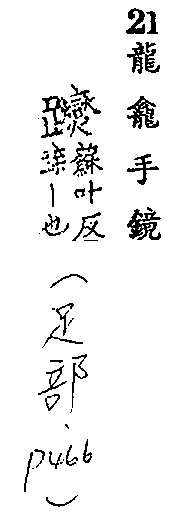 21 龍龕手鏡
躞蘇叶反
蹀丨也
(足部, p466)